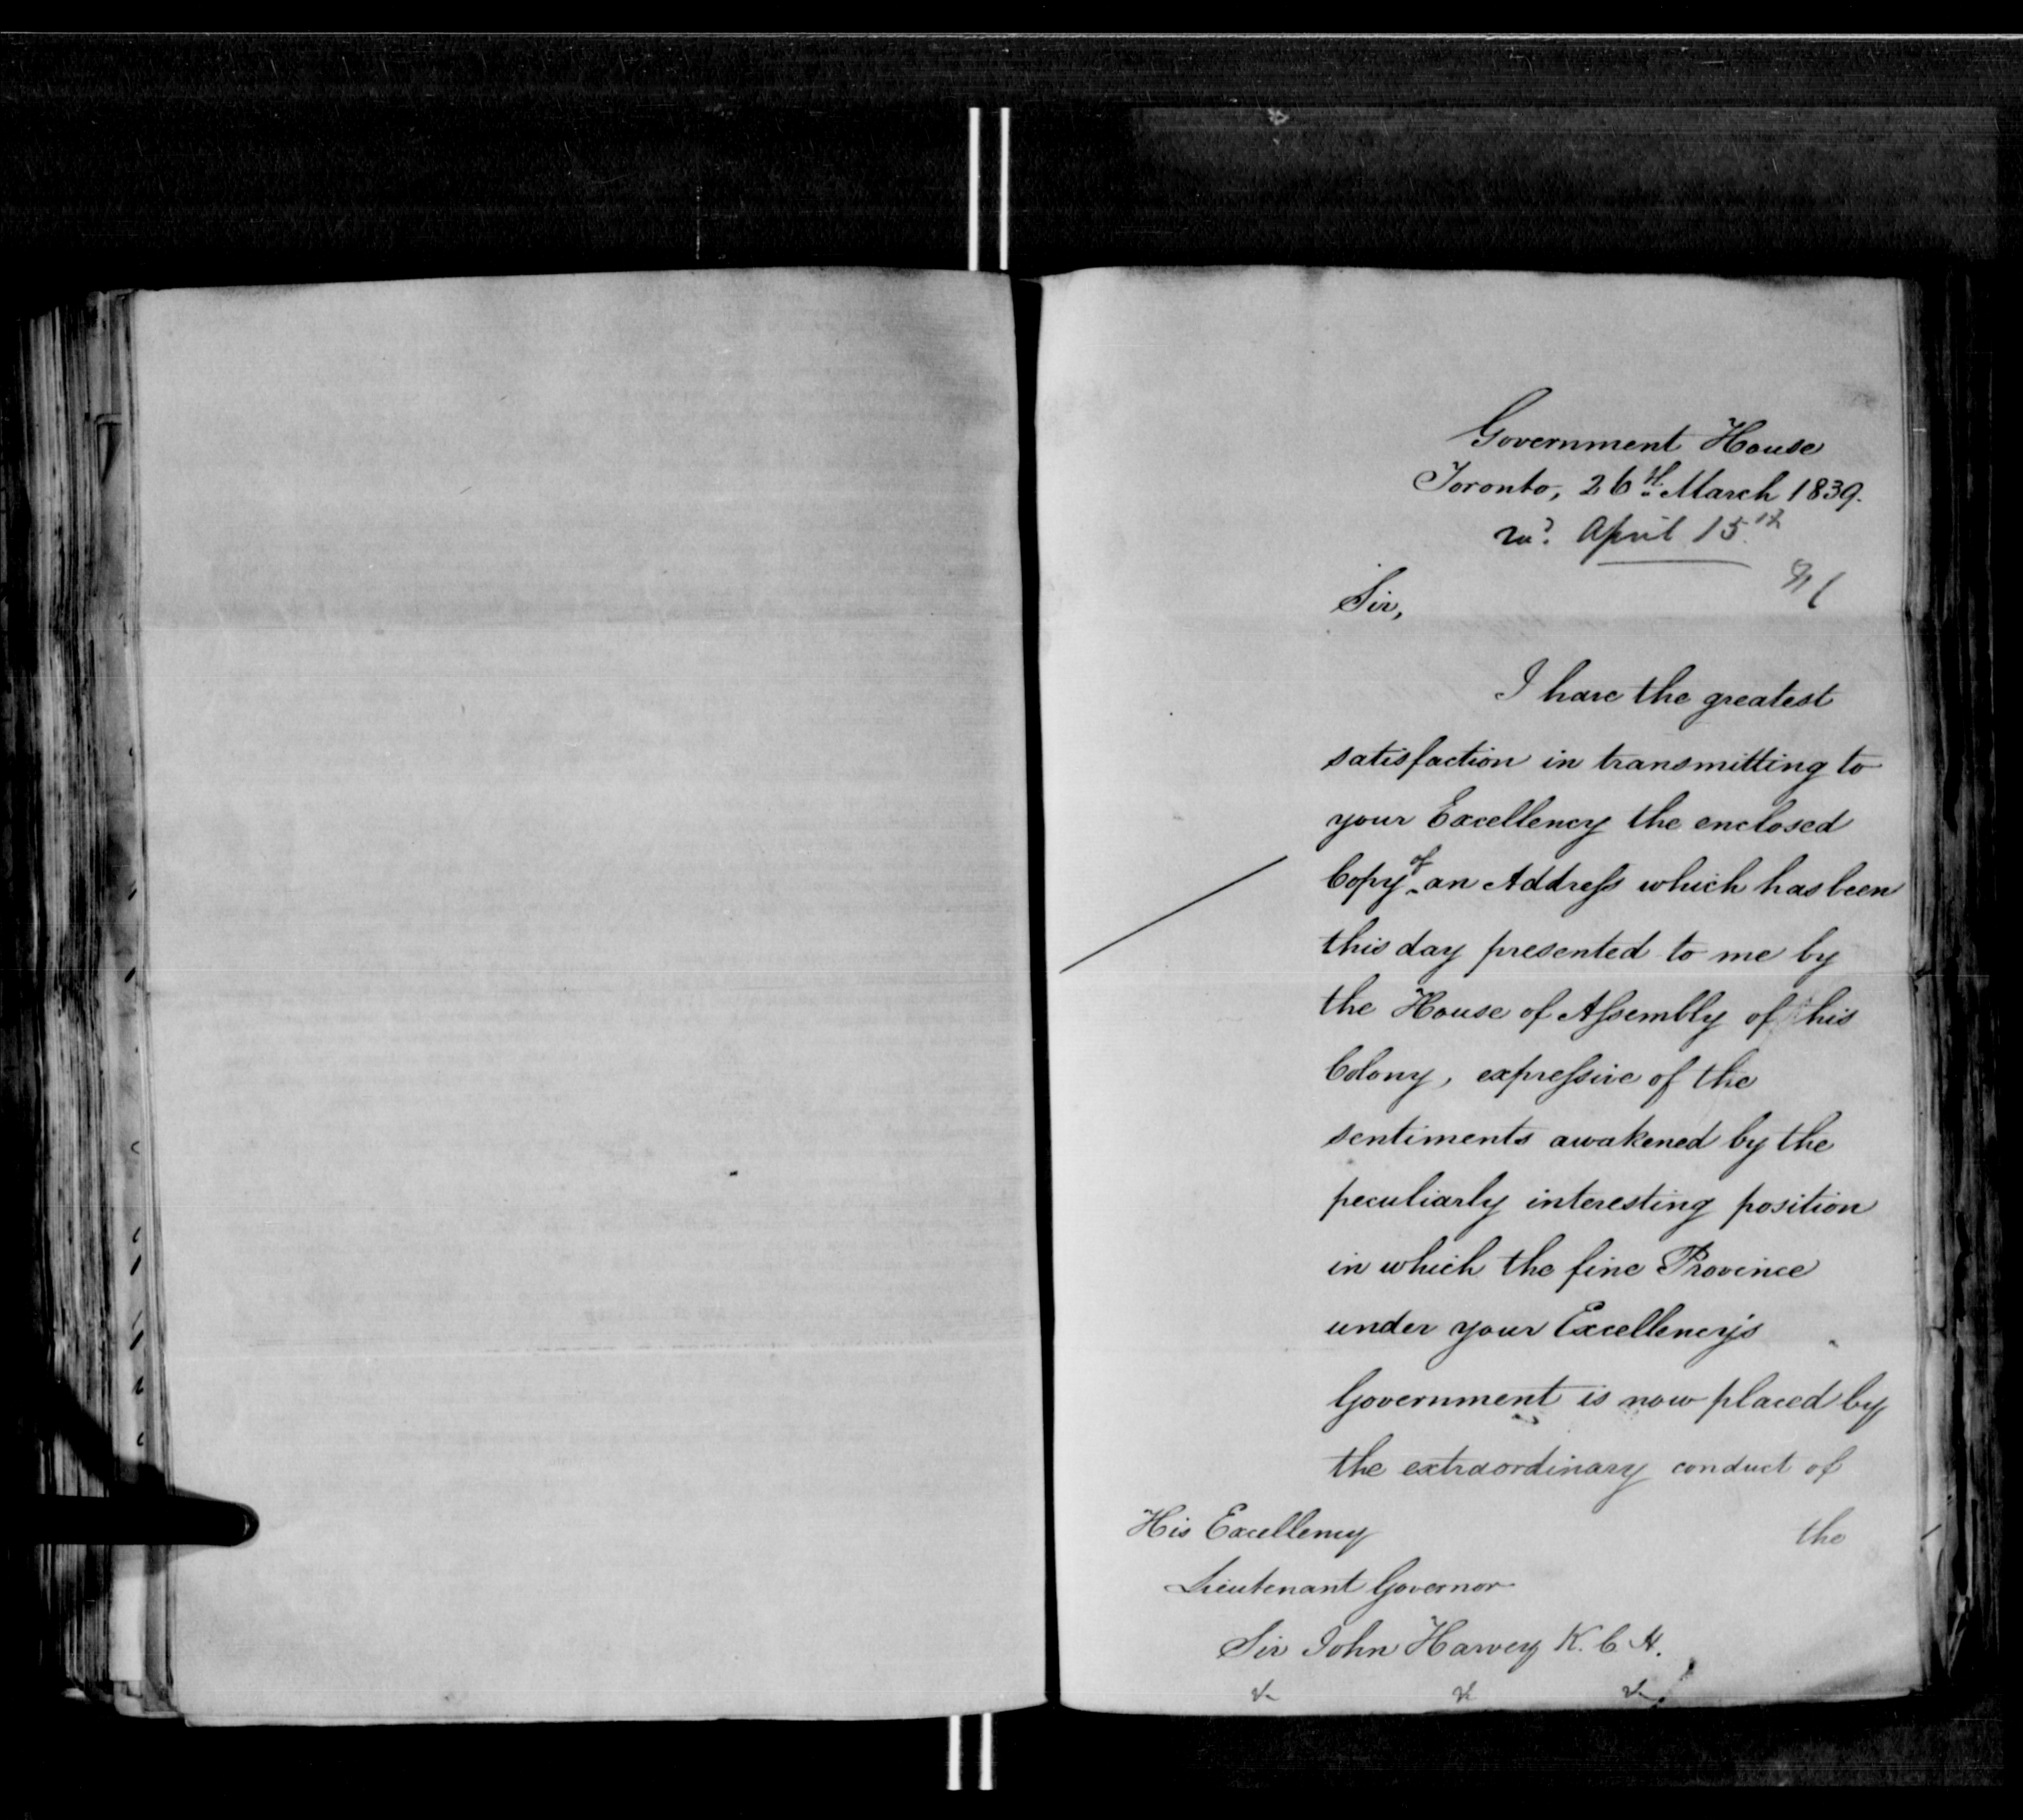 Government House
Toronto, 26th March 1839.
April 15th
Sir,
I have the greatest
satisfaction in transmitting to
your Excellency the enclosed
Copy of an Addreſs which has been
this day presented to me by
the House of Aſsembly of this
Colony, expreſsive of the
sentiments awakened by the
peculiarly interesting position
in which the fine Province
under your Excellency's
Government is now placed by
the extraordinary conduct of
the
His Excellency
Lieutenant Governor
Sir John Harvey K. C. H.